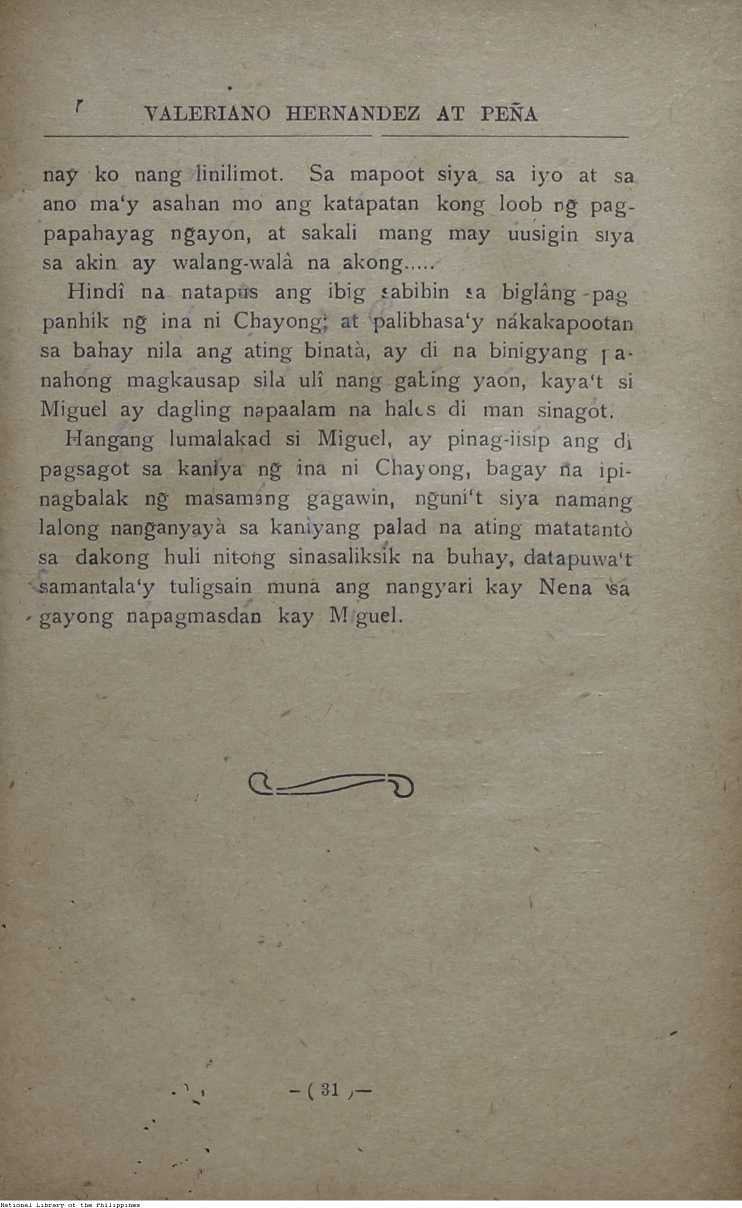 VALERIANO HERNANDEZ AT PEÑA
nay ko nang linilimot. Sa mapoot siya sa iyo at sa
ano ma‘y asahan mo ang katapatan kong loob ng̃ pag-
papahayag ng̃ayon, at sakali mang may uusigin siya
sa akin ay walang-walà na akong.....
Hindî na natapus ang ibig sabihin sa biglâng pag
panhik ng̃ ina ni Chayong; at palibhasa‘y nákakapootan
sa bahay nila ang ating binatà, ay di na binigyang pa-
nahong magkausap sila ulî nang gabing yaon, kaya‘t si
Miguel ay dagling napaalam na halos di man sinagot.
Hangang lumalakad si Miguel, ay pinag-iisip ang di
pagsagot sa kaniya ng̃ ina ni Chayong, bagay na ipi-
nagbalak ng̃ masamang gagawin, ng̃uni‘t siya namang
lalong nang̃anyayà sa kaniyang palad na ating matatantò
sa dakong huli nitong sinasaliksik na buhay, datapuwa‘t
samantala‘y tuligsain muna ang nangyari kay Nena sa
gayong napagmasdan kay Miguel.
—( 31 )—
National Library of the Philippines